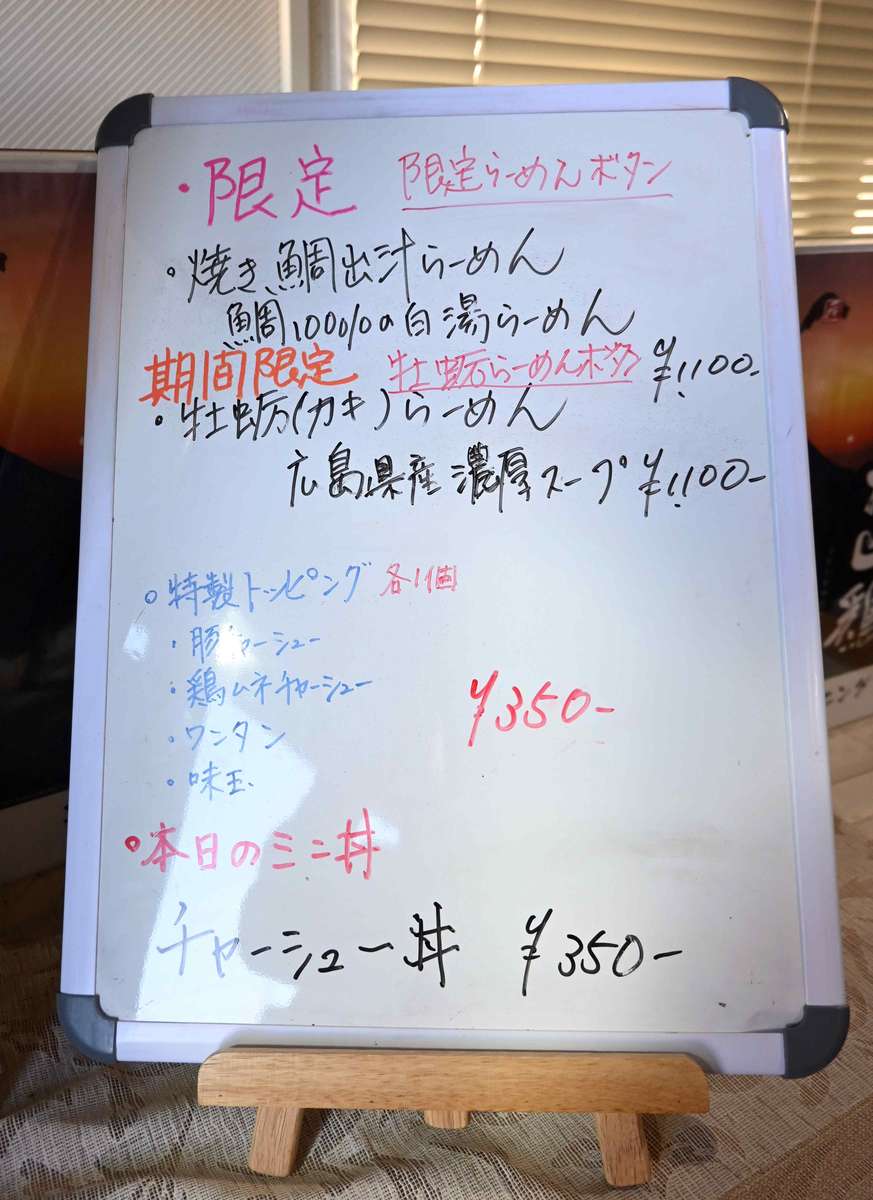 ・限定 限定らーめんボタン
・焼き鯛出汁らーめん
鯛100%の白湯らーめん
期間限定 牡蛎らーめんボタン ¥1,100-
・牡蛎(カキ)らーめん
広島県産濃厚スープ ¥1,100-
・特製トッピング 各1個
・豚チャーシュー
・鶏ムネチャーシュー
¥350-
・ワンタン
・味玉
・本日のミニ丼
チャーシュー丼 ¥350-
鶏
ニング